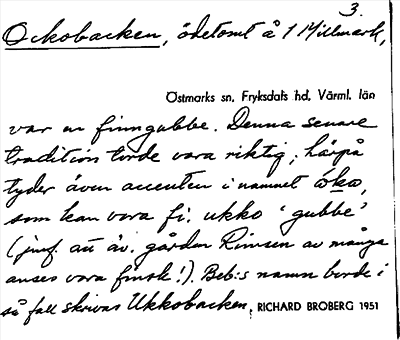 3.
Ockobacken, ödetomt å 1 Millmark,
Östmarks sn, Fryksdals hd, Värml. län
var en finngubbe. Denna senare
tradition torde vara riktig; härpå
tyder även accenten i namnet òko,
som kan vara fi. ukko 'gubbe'
(jmf. att äv. gården Rimsen av många
anses vara finsk!). Beb:s namn borde i
så fall skrivas Ukkobacken. RICHARD BROBERG 1951